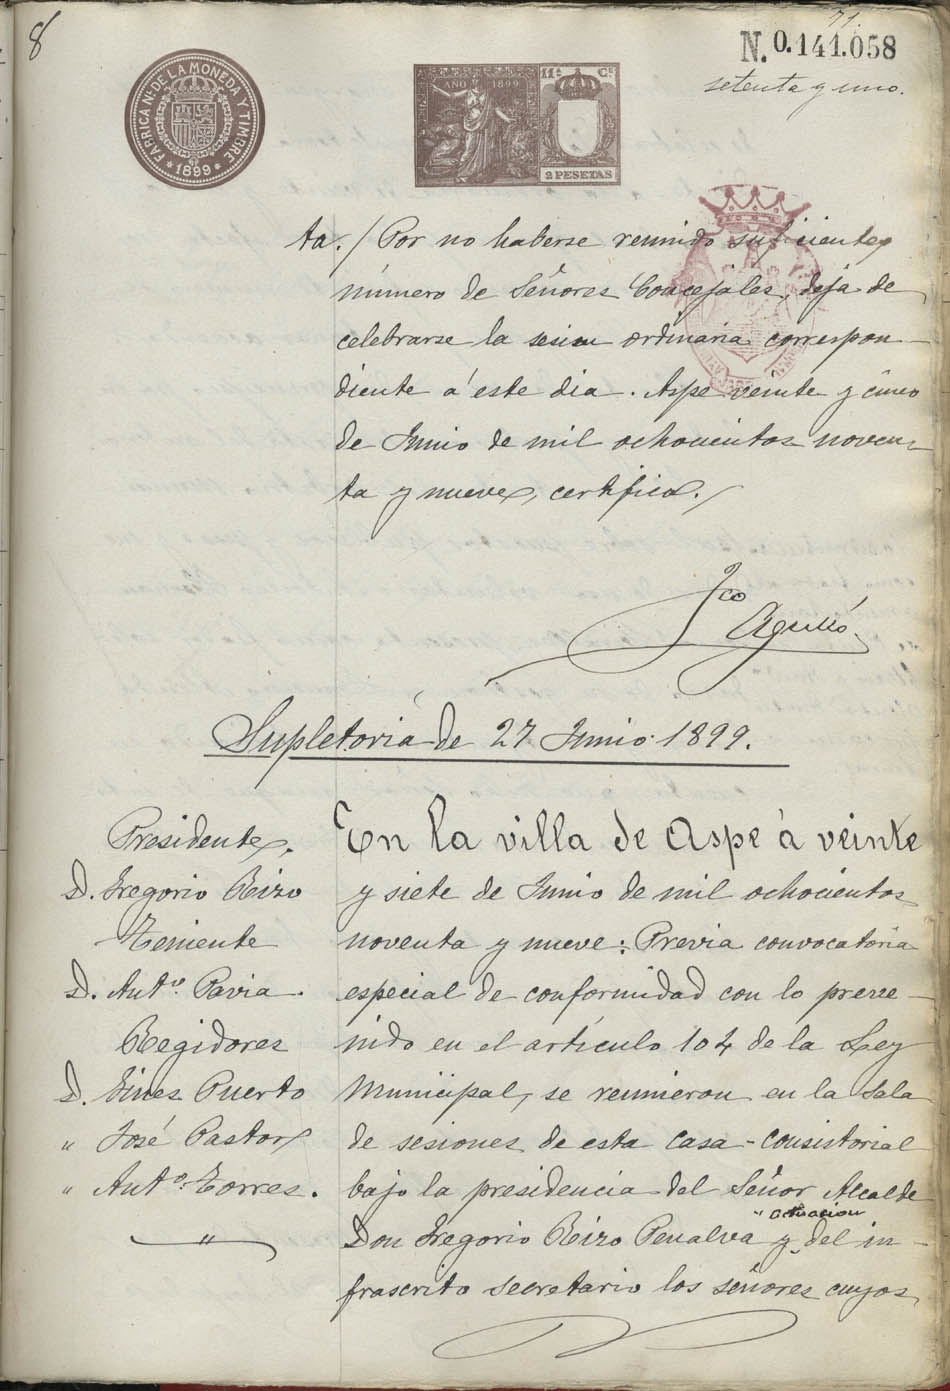 8
71.
N. 0.141.058
setenta y uno.
FABRICA N. DE LA MONEDA Y TIMBRE
* 1899 *
AÑO 1899
11ª Cˢ
2 PESETAS
ta. / Por no haberse reunido suficiente
número de Señores Concejales, deja de
celebrarse la sesion ordinaria correspon-
diente á este dia. Aspe veinte y cinco
de Junio de mil ochocientos noven-
ta y nueve, certifico.
Fco Agulló
Supletoria de 27 Junio 1899.
Presidente.
D. Gregorio Rizo
Teniente
D. Antº. Pavia.
Regidores
D. Gines Puerto
" José Pastor
" Antº. Torres.
"
En la villa de Aspe á veinte
y siete de Junio de mil ochocientos
noventa y nueve: Previa convocatoria
especial de conformidad con lo preve-
nido en el artículo 104 de la Ley
Municipal, se reunieron en la Sala
de sesiones de esta casa-consistorial
bajo la presidencia del Señor Alcalde
" actuacion
Don Gregorio Rizo Penalva y del in-
frascrito secretario los señores cuyos